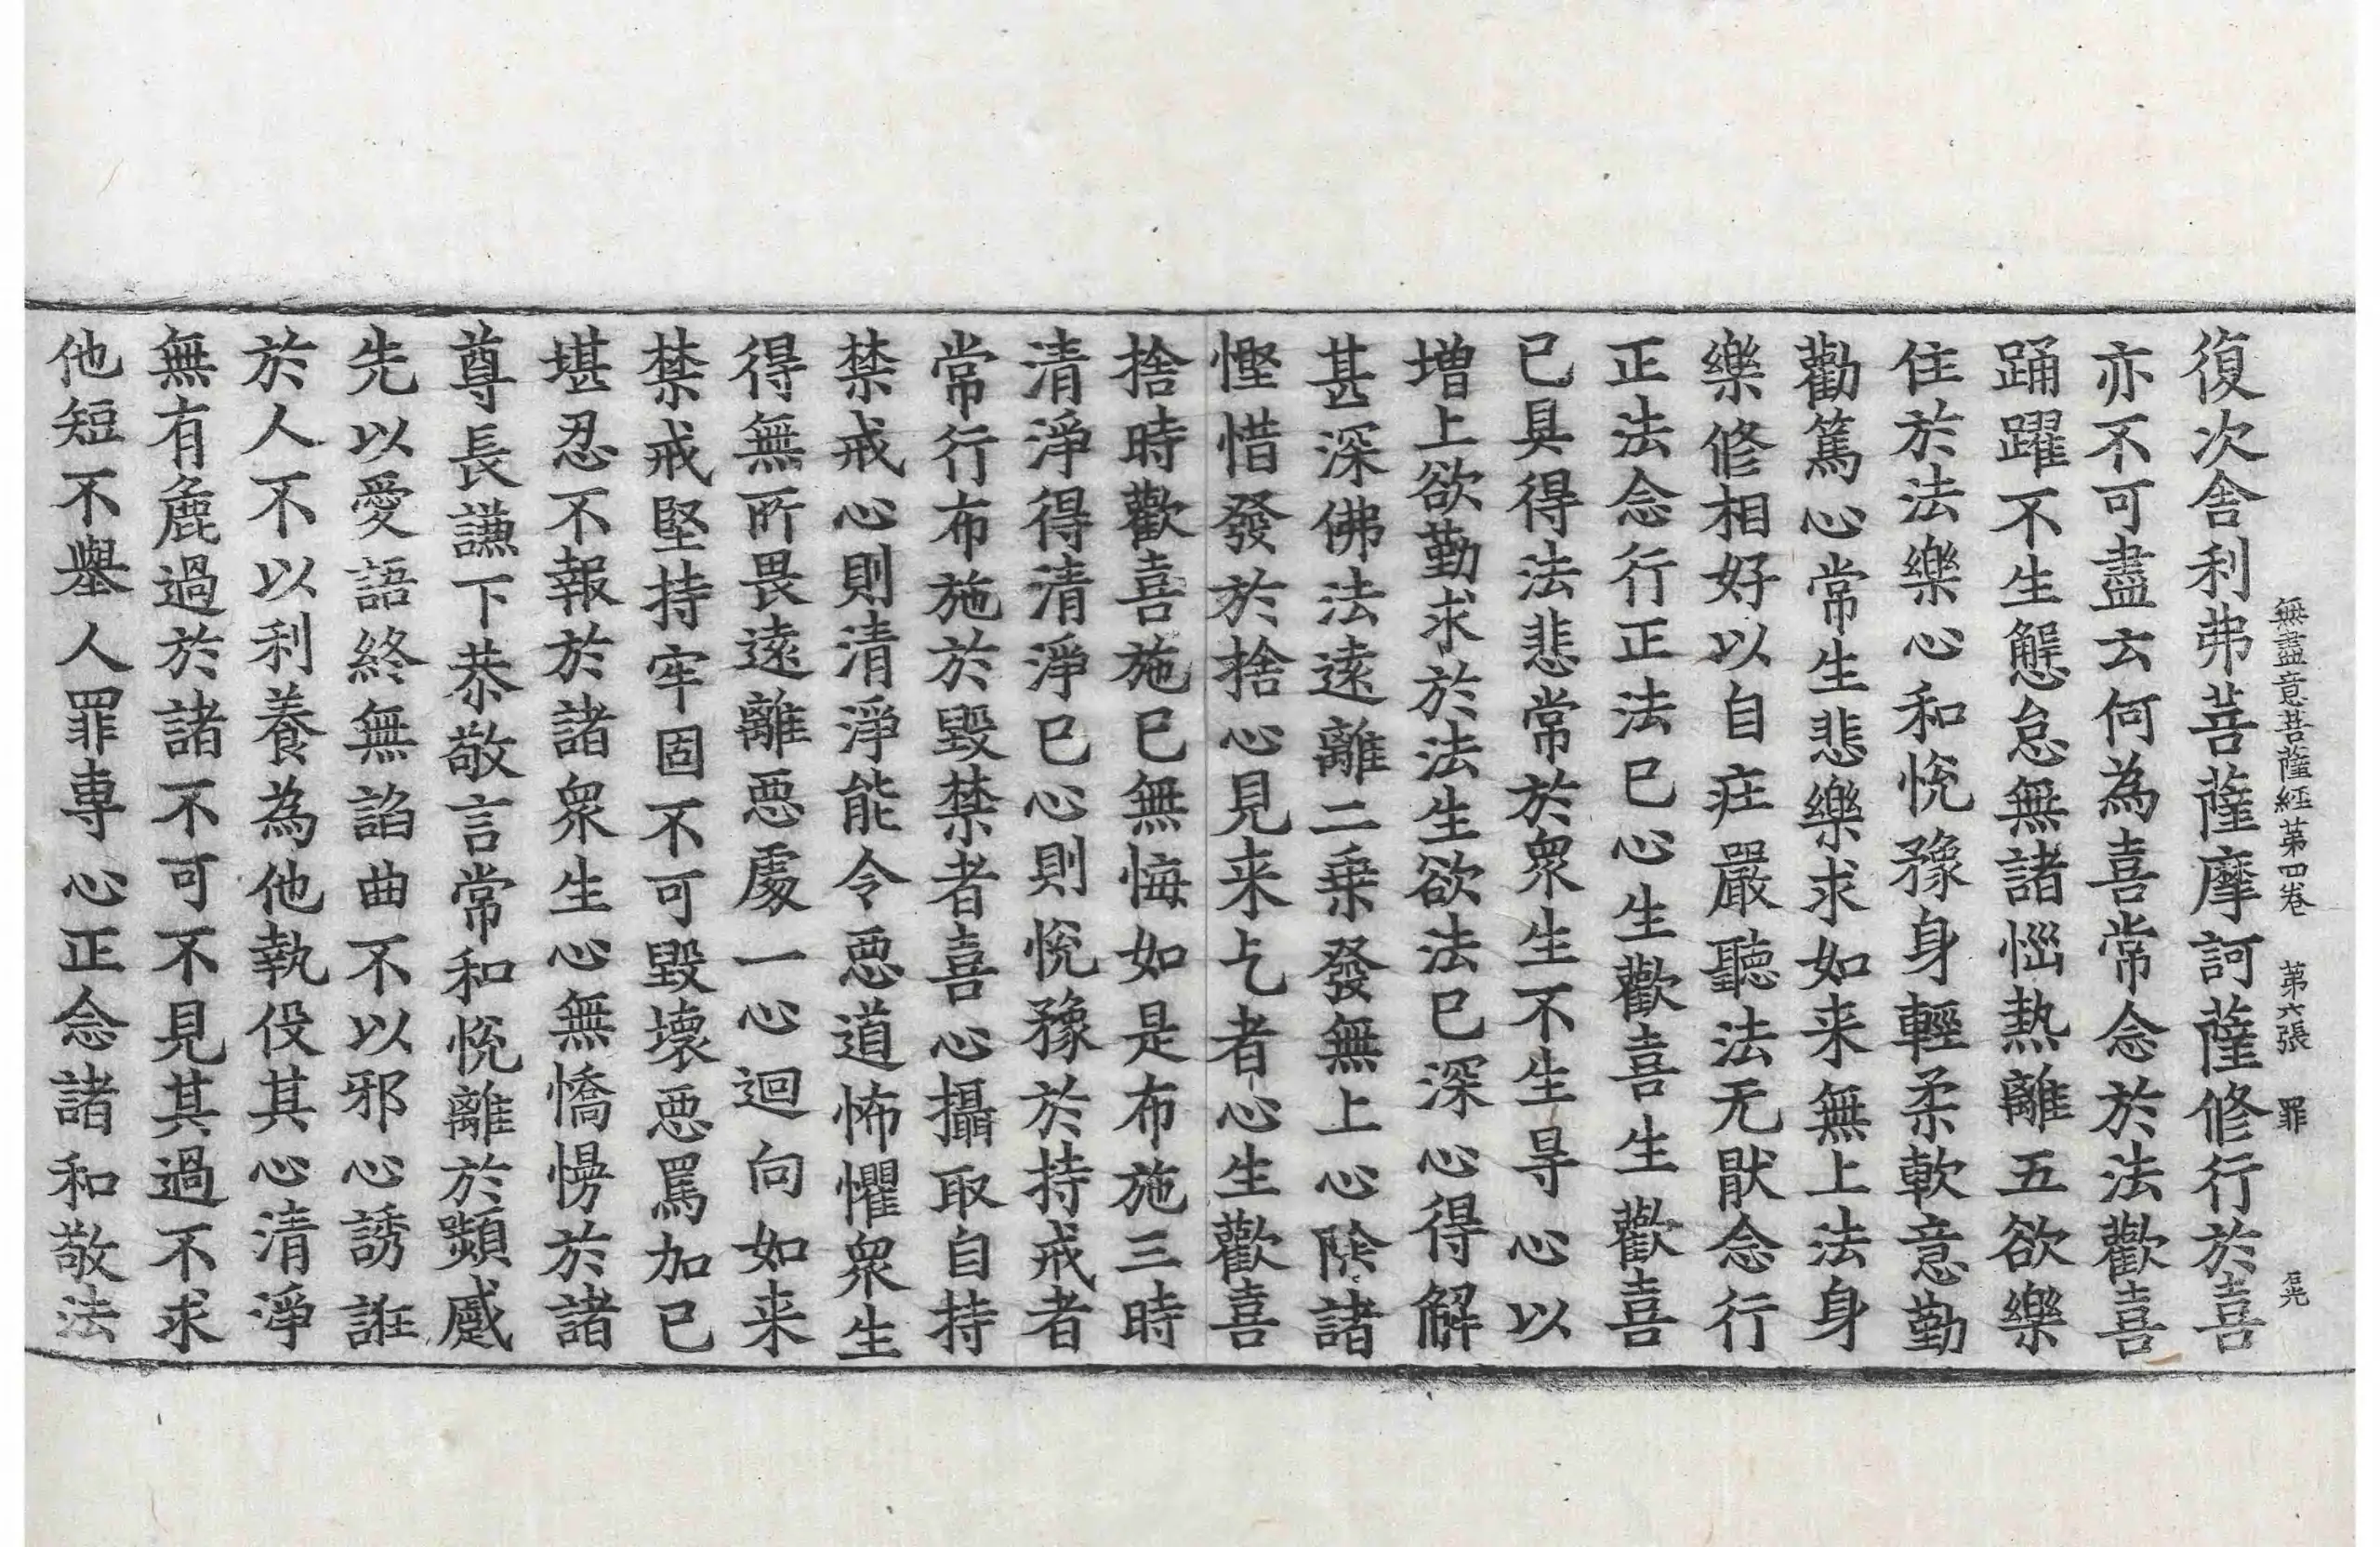 無盡意菩薩經第四卷 第六張 罪
復次舍利弗菩薩摩訶薩修行於喜
亦不可盡云何為喜常念於法歡喜
踊躍不生懈怠無諸惱熱離五欲樂
住於法樂心和悅豫身輕柔軟意勤
勸篤心常生悲樂求如来無上法身
樂修相好以自庄嚴聽法无猒念行
正法念行正法已心生歡喜生歡喜
已具得法悲常於衆生不生㝵心以
增上欲勤求於法生欲法已深心得解
甚深佛法遠離二乗發無上心除諸
慳惜發於捨心見来乞者心生歡喜
捨時歡喜施已無悔如是布施三時
清淨得清淨已心則悅豫於持戒者
常行布施於毀禁者喜心攝取自持
禁戒心則清淨能令惡道怖懼衆生
得無所畏遠離惡處一心迴向如来
禁戒堅持牢固不可毀壞惡罵加已
堪忍不報於諸衆生心無憍慢於諸
尊長謙下恭敬言常和悅離於顰蹙
先以愛語終無諂曲不以邪心誘誑
於人不以利養為他執役其心清淨
無有麁過於諸不可不見其過不求
他短不舉人罪專心正念諸和敬法